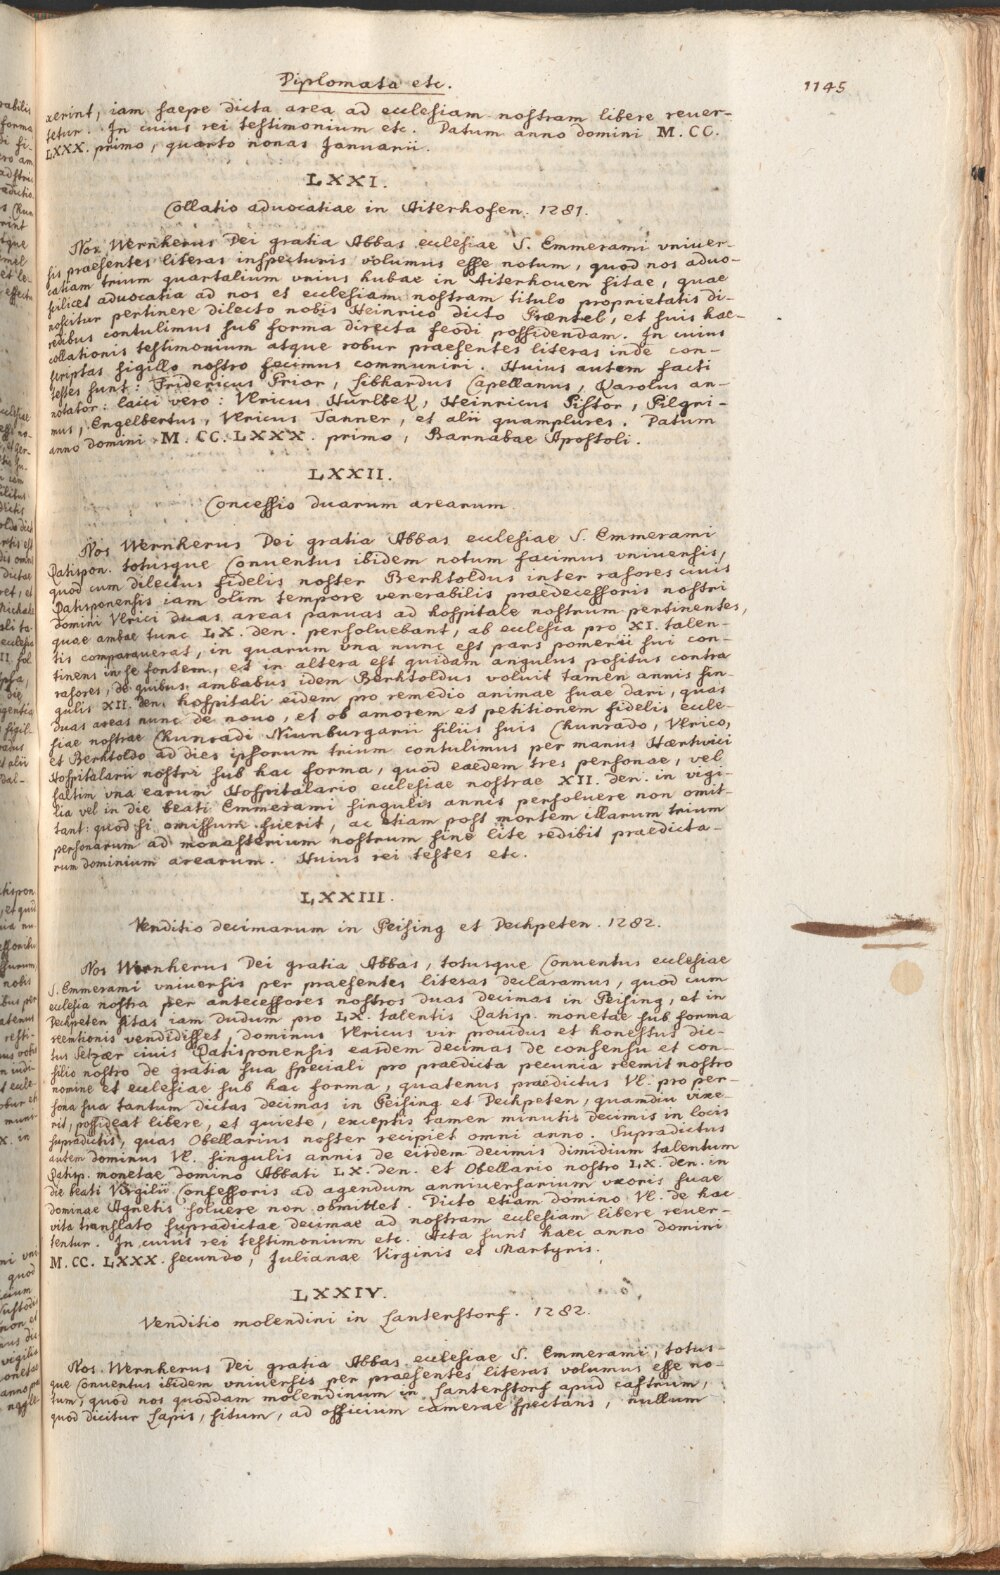 Diplomata etc.
1145
xerint, iam saepe dicta area ad ecclesiam nostram libere reuer-
tetur. In cuius rei testimonium etc. Datum anno domini M. CC.
LXXX. primo, quarto nonas Januarii.
LXXI.
Collatio aduocatiae in Aiterhofen. 1281.
Nos Wernherus Dei gratia Abbas ecclesiae S. Emmerami vniuer-
sis praesentes literas inspecturis volumus esse notum, quod nos aduo-
catiam trium quartalium vnius hubae in Aiterhouen sitae, quae
scilicet aduocatia ad nos et ecclesiam nostram titulo proprietatis di-
noscitur pertinere dilecto nobis Heinrico dicto Præntel, et suis hae-
redibus contulimus sub forma directa feodi possidendam. In cuius
collationis testimonium atque robur praesentes literas inde con-
scriptas sigillo nostro fecimus communiri. Huius autem facti
testes sunt: Fridericus Prior, Sibhardus Capellanus, Karolus an-
notator: laici vero: Vlricus Hurlbek, Heinricus Pistor, Pilgri-
mus, Engelbertus, Vlricus Tanner, et alii quamplures. Datum
anno domini M. CC. LXXX. primo, Barnabae Apostoli.
LXXII.
Concessio duarum arearum.
Nos Wernherus Dei gratia Abbas ecclesiae S. Emmerami
Ratispon. totusque Conuentus ibidem notum facimus vniuersis,
quod cum dilectus fidelis noster Berhtoldus inter rasores ciuis
Ratisponensis iam olim tempore venerabilis praedecessoris nostri
domini Vlrici duas areas paruas ad hospitale nostrum pertinentes,
quae ambae tunc LX. den. persoluebant, ab ecclesia pro XI. talen-
tis comparauerat, in quarum vna nunc est pars pomerii sui con-
tinens in se fontem, et in altera est quidam angulus positus contra
rasores, de quibus ambabus idem Berhtoldus voluit tamen annis sin-
gulis XII. den. hospitali eidem pro remedio animae suae dari, quas
duas areas nunc de nouo, et ob amorem et petitionem fidelis eccle-
siae nostrae Chunradi Niumburgarii filiis suis Chunrado, Vlrico,
et Berhtoldo ad dies ipsorum trium contulimus per manus Hærtwici
Hospitalarii nostri sub hac forma, quod eaedem tres personae, vel
saltim vna earum Hospitalario ecclesiae nostrae XII. den. in vigi-
lia vel in die beati Emmerami singulis annis persoluere non omit-
tant: quod si omissum fuerit, ac etiam post mortem illarum trium
personarum ad monasterium nostrum sine lite redibit praedicta-
rum dominium arearum. Huius rei testes etc.
LXXIII.
Venditio decimarum in Peising et Dechpeten. 1282.
Nos Wernherus Dei gratia Abbas, totusque Conuentus ecclesiae
S. Emmerami vniuersis per praesentes literas declaramus, quod cum
ecclesia nostra per antecessores nostros duas decimas in Peising, et in
Dechpeten sitas iam dudum pro LX. talentis Ratisp. monetae sub forma
reemtionis vendidisset dominus Vlricus vir prouidus et honestus dic-
tus Selzær ciuis Ratisponensis easdem decimas de consensu et con-
silio nostro de gratia sua speciali pro praedicta pecunia reemit nostro
nomine et ecclesiae sub hac forma, quatenus praedictus Vl. pro per-
sona sua tantum dictas decimas in Peising et Dechpeten, quamdiu vixe-
rit, possideat libere, et quiete, exceptis tamen minutis decimis in locis
supradictis, quas Obellarius noster recipiet omni anno. Supradictus
autem dominus Vl. singulis annis de eisdem decimis dimidium talentum
Ratisp. monetae domino Abbati LX. den. et Obellario nostro LX. den. in
die beati Virgilii Confessoris ad agendum anniuersarium vxoris suae
dominae Agnetis soluere non obmittet. Dicto etiam domino Vl. de hac
vita translato supradictae decimae ad nostram ecclesiam libere reuer-
tentur. In cuius rei testimonium etc. Acta sunt haec anno domini
M. CC. LXXX. secundo, Julianae Virginis et Martyris.
LXXIV.
Venditio molendini in Santerstorf. 1282.
Nos Wernherus Dei gratia Abbas ecclesiae S. Emmerami, totus-
que Conuentus ibidem vniuersis per praesentes literas volumus esse no-
tum, quod nos quoddam molendinum in Santerstorf apud castrum,
quod dicitur Lapis, situm, ad officium camerae spectans, nullum